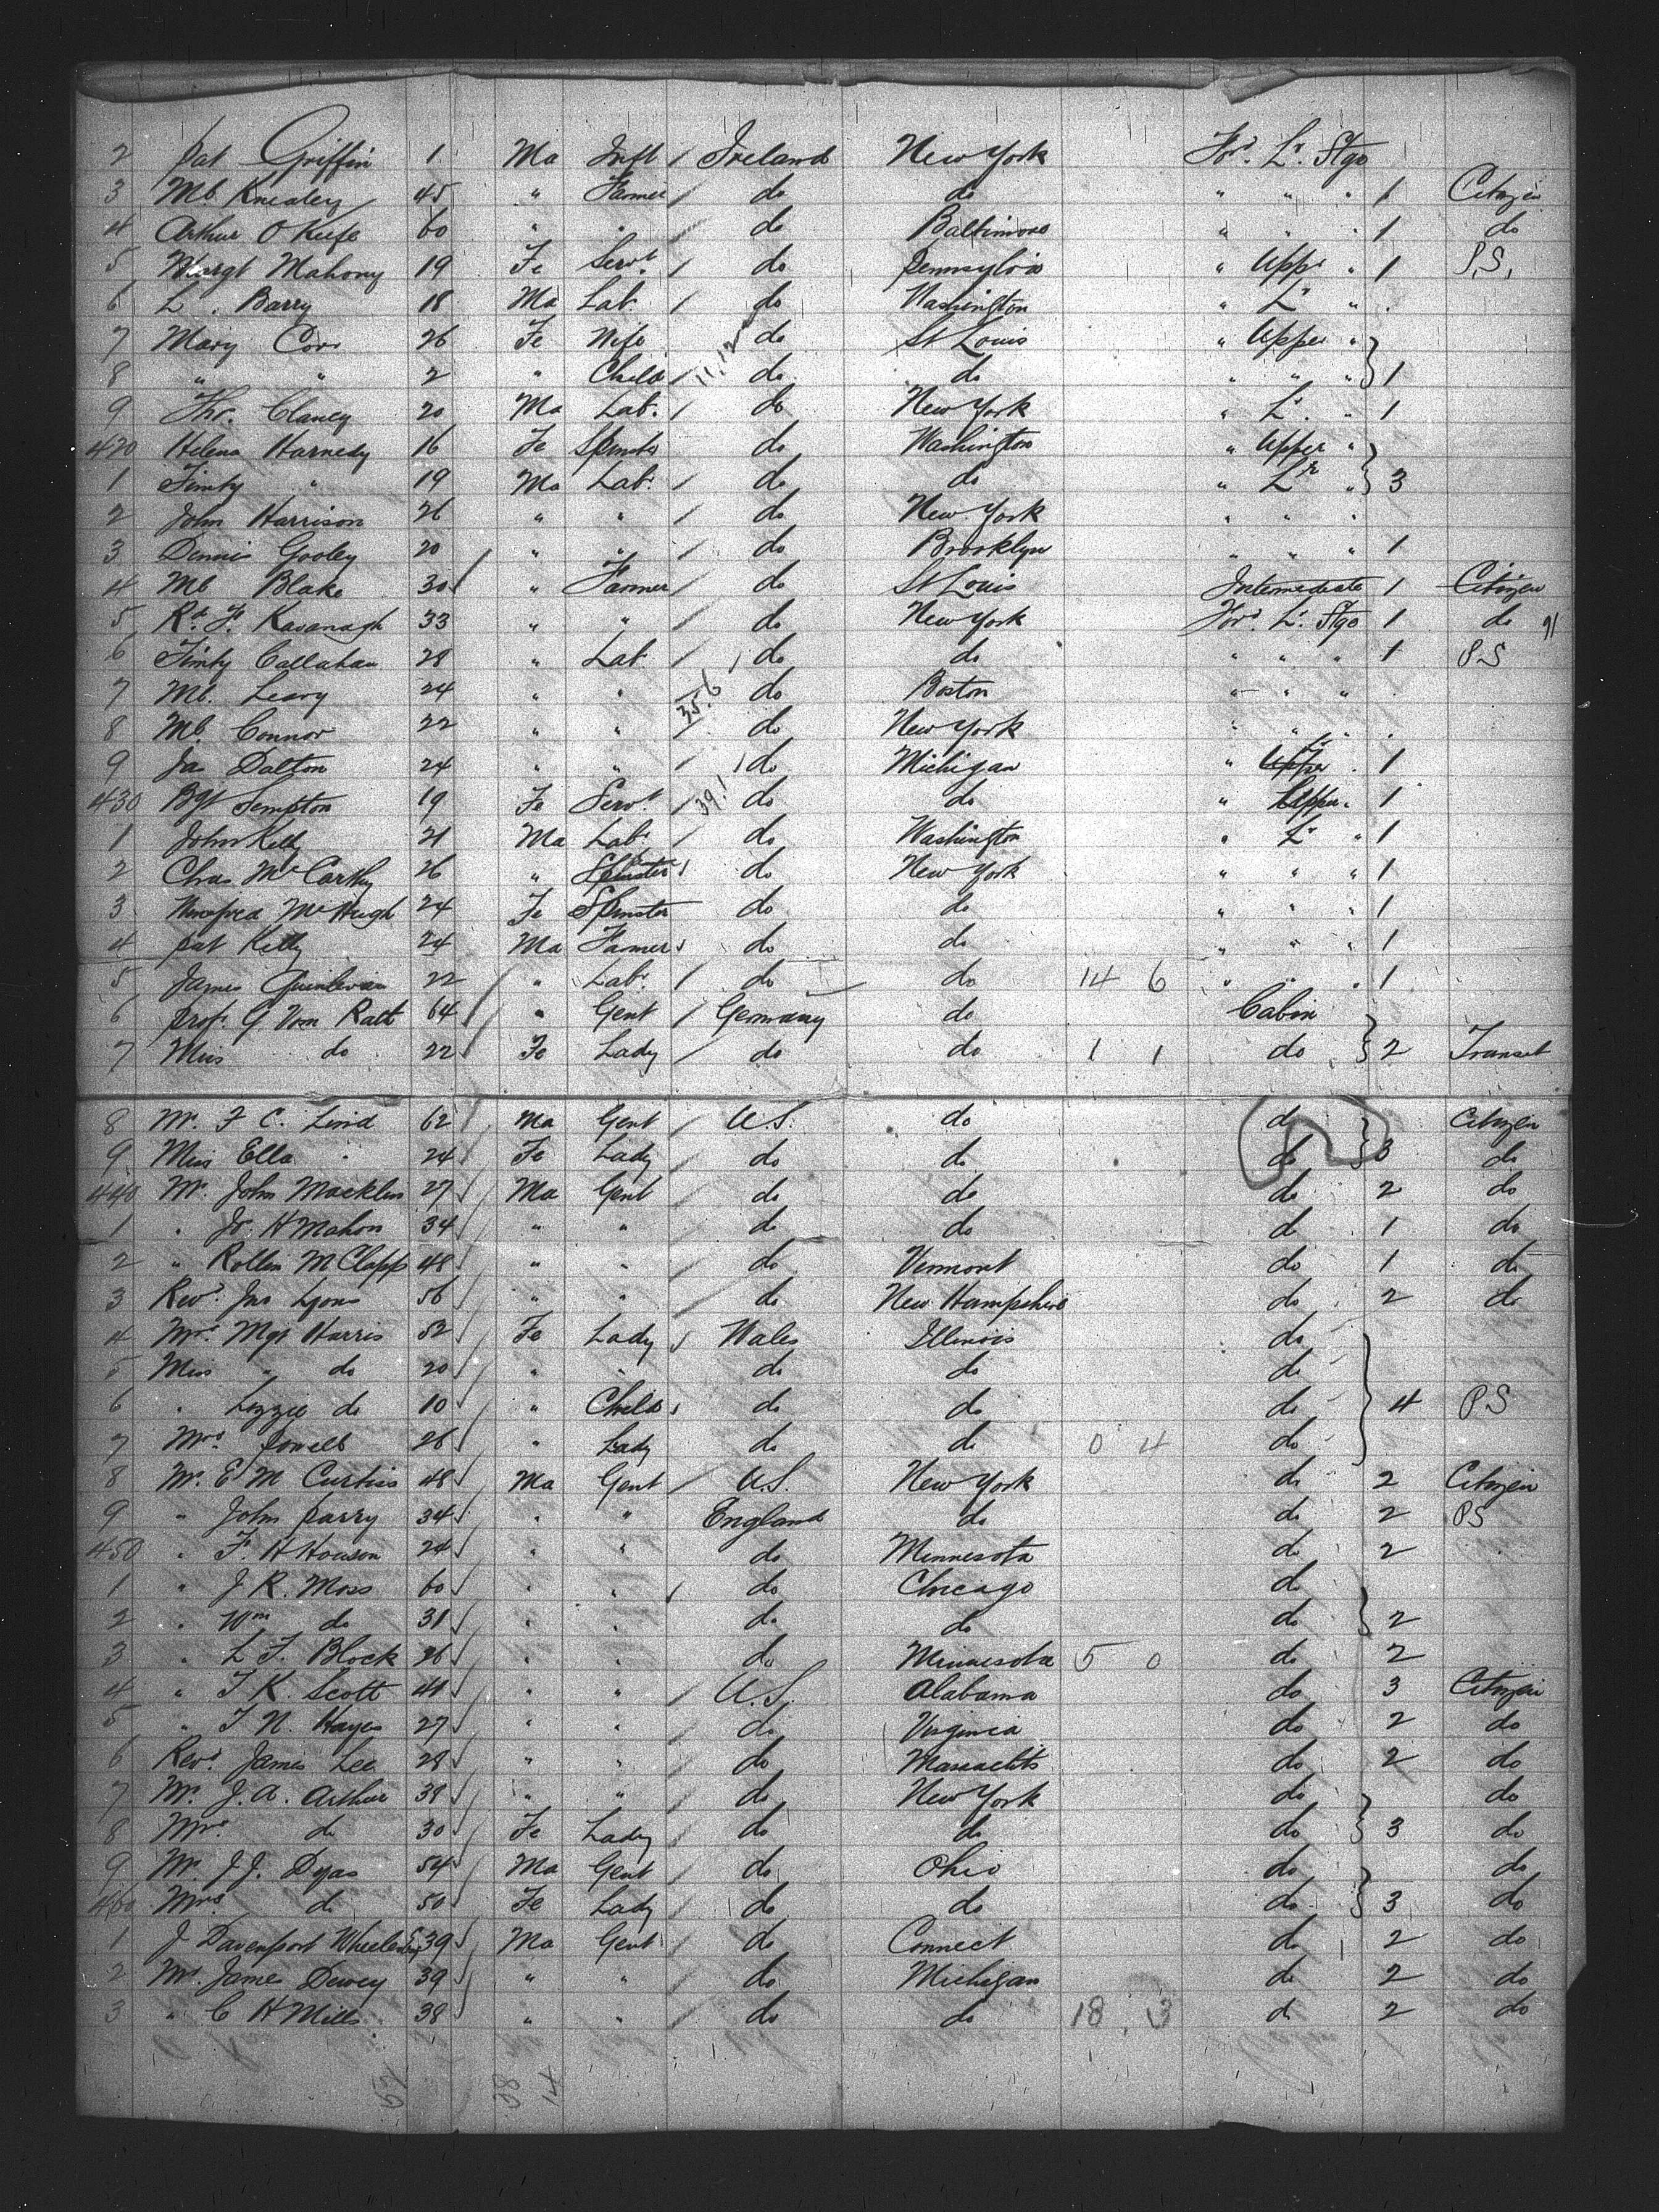 2 Pat Griffin 1 Ma Inft / Ireland New York For.d L.r Stge
3 Ml Knealey 45 " Farmer / do do " " " 1 Citizen
4 Arthur O Keefe 60 " " do Baltimore " " " 1 do
5 Margt Mahony 19 Fe Serv.t / do Pennsylvia " Uppr " 1 P.S.
6 L. Barry 18 Ma Lab. / do Washington " L.r "
7 Mary Corr 26 Fe Wife do St Louis " Upper "
8 " " 2 " Child / 11.12 do do " " " } 1
9 Tho. Clancy 20 Ma Lab. / do New York " L.r " 1
420 Helena Harnedy 16 Fe Spinster do Washington " Upper "
1 Timty " 19 Ma Lab. / do do " L.r " } 3
2 John Harrison 26 " " / do New York " " "
3 Dennis Gooley 20 / " " / do Brooklyn " " " 1
4 Ml Blake 30 / " Farmer / do St Louis Intermediate 1 Citizen
5 R.d F. Kavanagh 33 " " / do New York For.d L.r Stge 1 do 91
6 Timty Callahan 28 " Lab / do do " " " 1 P.S
7 Ml. Leary 24 " " 35.6 do Boston " " "
8 Ml. Connor 22 " " / do New York " " "
9 Ja Dalton 24 " " / do Michigan " Upper " 1
430 Bgt Sempton 19 Fe Serv.t / 39.1 do do " Upper " 1
1 John Kelly 21 Ma Lab.r / do Washington " L.r " 1
2 Chas McCarthy 26 " Spinster do New York " " " 1
3 Winefred McHugh 24 Fe Spinster do do " " " 1
4 Pat Kelly 24 Ma Farmer do do " " " 1
5 James Quinlivan 22 / " Lab.r / do do 14 6 " " " 1
6 Prof. G Vom Rath 64 / " Gent / Germany do Cabin
7 Miss do 22 / Fe Lady / do do 1 1 do } 2 Transit
8 Mr. F C. Lind 62 / Ma Gent / U.S. do do Citizen
9 Miss Ella " 24 / Fe Lady / do do do } 3 do
440 Mr. John Macklin 27 / Ma Gent / do do do 2 do
1 " Jr. H Mahon 34 / " " / do do do 1 do
2 " Rollin M Clapp 48 / " " / do Vermont do 1 do
3 Rev.d Jno Lyons 56 / " " / do New Hampshire do 2 do
4 Mrs. Mgt Harris 52 / Fe Lady Wales Illinois do
5 Miss " do 20 / " " do do do
6 " Lizzie do 10 / " Child do do do } 4 P.S
7 Mrs. Powell 26 / " Lady do do 0 4 do
8 Mr. E M Curtiss 48 / Ma Gent / U.S. New York do 2 Citizen
9 " John Parry 34 / " " England do do 2 PS
450 " F. H Howson 24 / " " do Minnesota do 2
1 " J R. Moss 60 / " " / do Chicago do
2 " Wm do 31 / " " do do do } 2
3 " L F. Block 26 / " " do Minnesota 5 0 do 2
4 " F K. Scott 41 / " " / U.S. Alabama do 3 Citizen
5 " T N. Hayes 27 / " " / do Virginia do 2 do
6 Rev.d James Lee 28 / " " / do Massachtts do 2 do
7 Mr. J. A. Arthur 38 / " " / do New York do do
8 Mrs. do 30 / Fe Lady / do do do } 3 do
9 Mr. J J. Dyas 54 / Ma Gent / do Ohio do do
460 Mrs. do 50 / Fe Lady / do do do } 3 do
1 J Davenport Wheeler 39 / Ma Gent do Connect do 2 do
2 Mr. James Dewey 39 / " " do Michigan do 2 do
3 " C H Mills 38 / " " do do 18 . 3 do 2 do